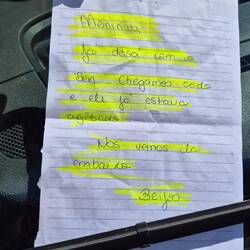 Meninas
já desci com o
Ben chegamos cedo
e ele já estava
agitado
Nos vemos lá
embaixo
Beijos